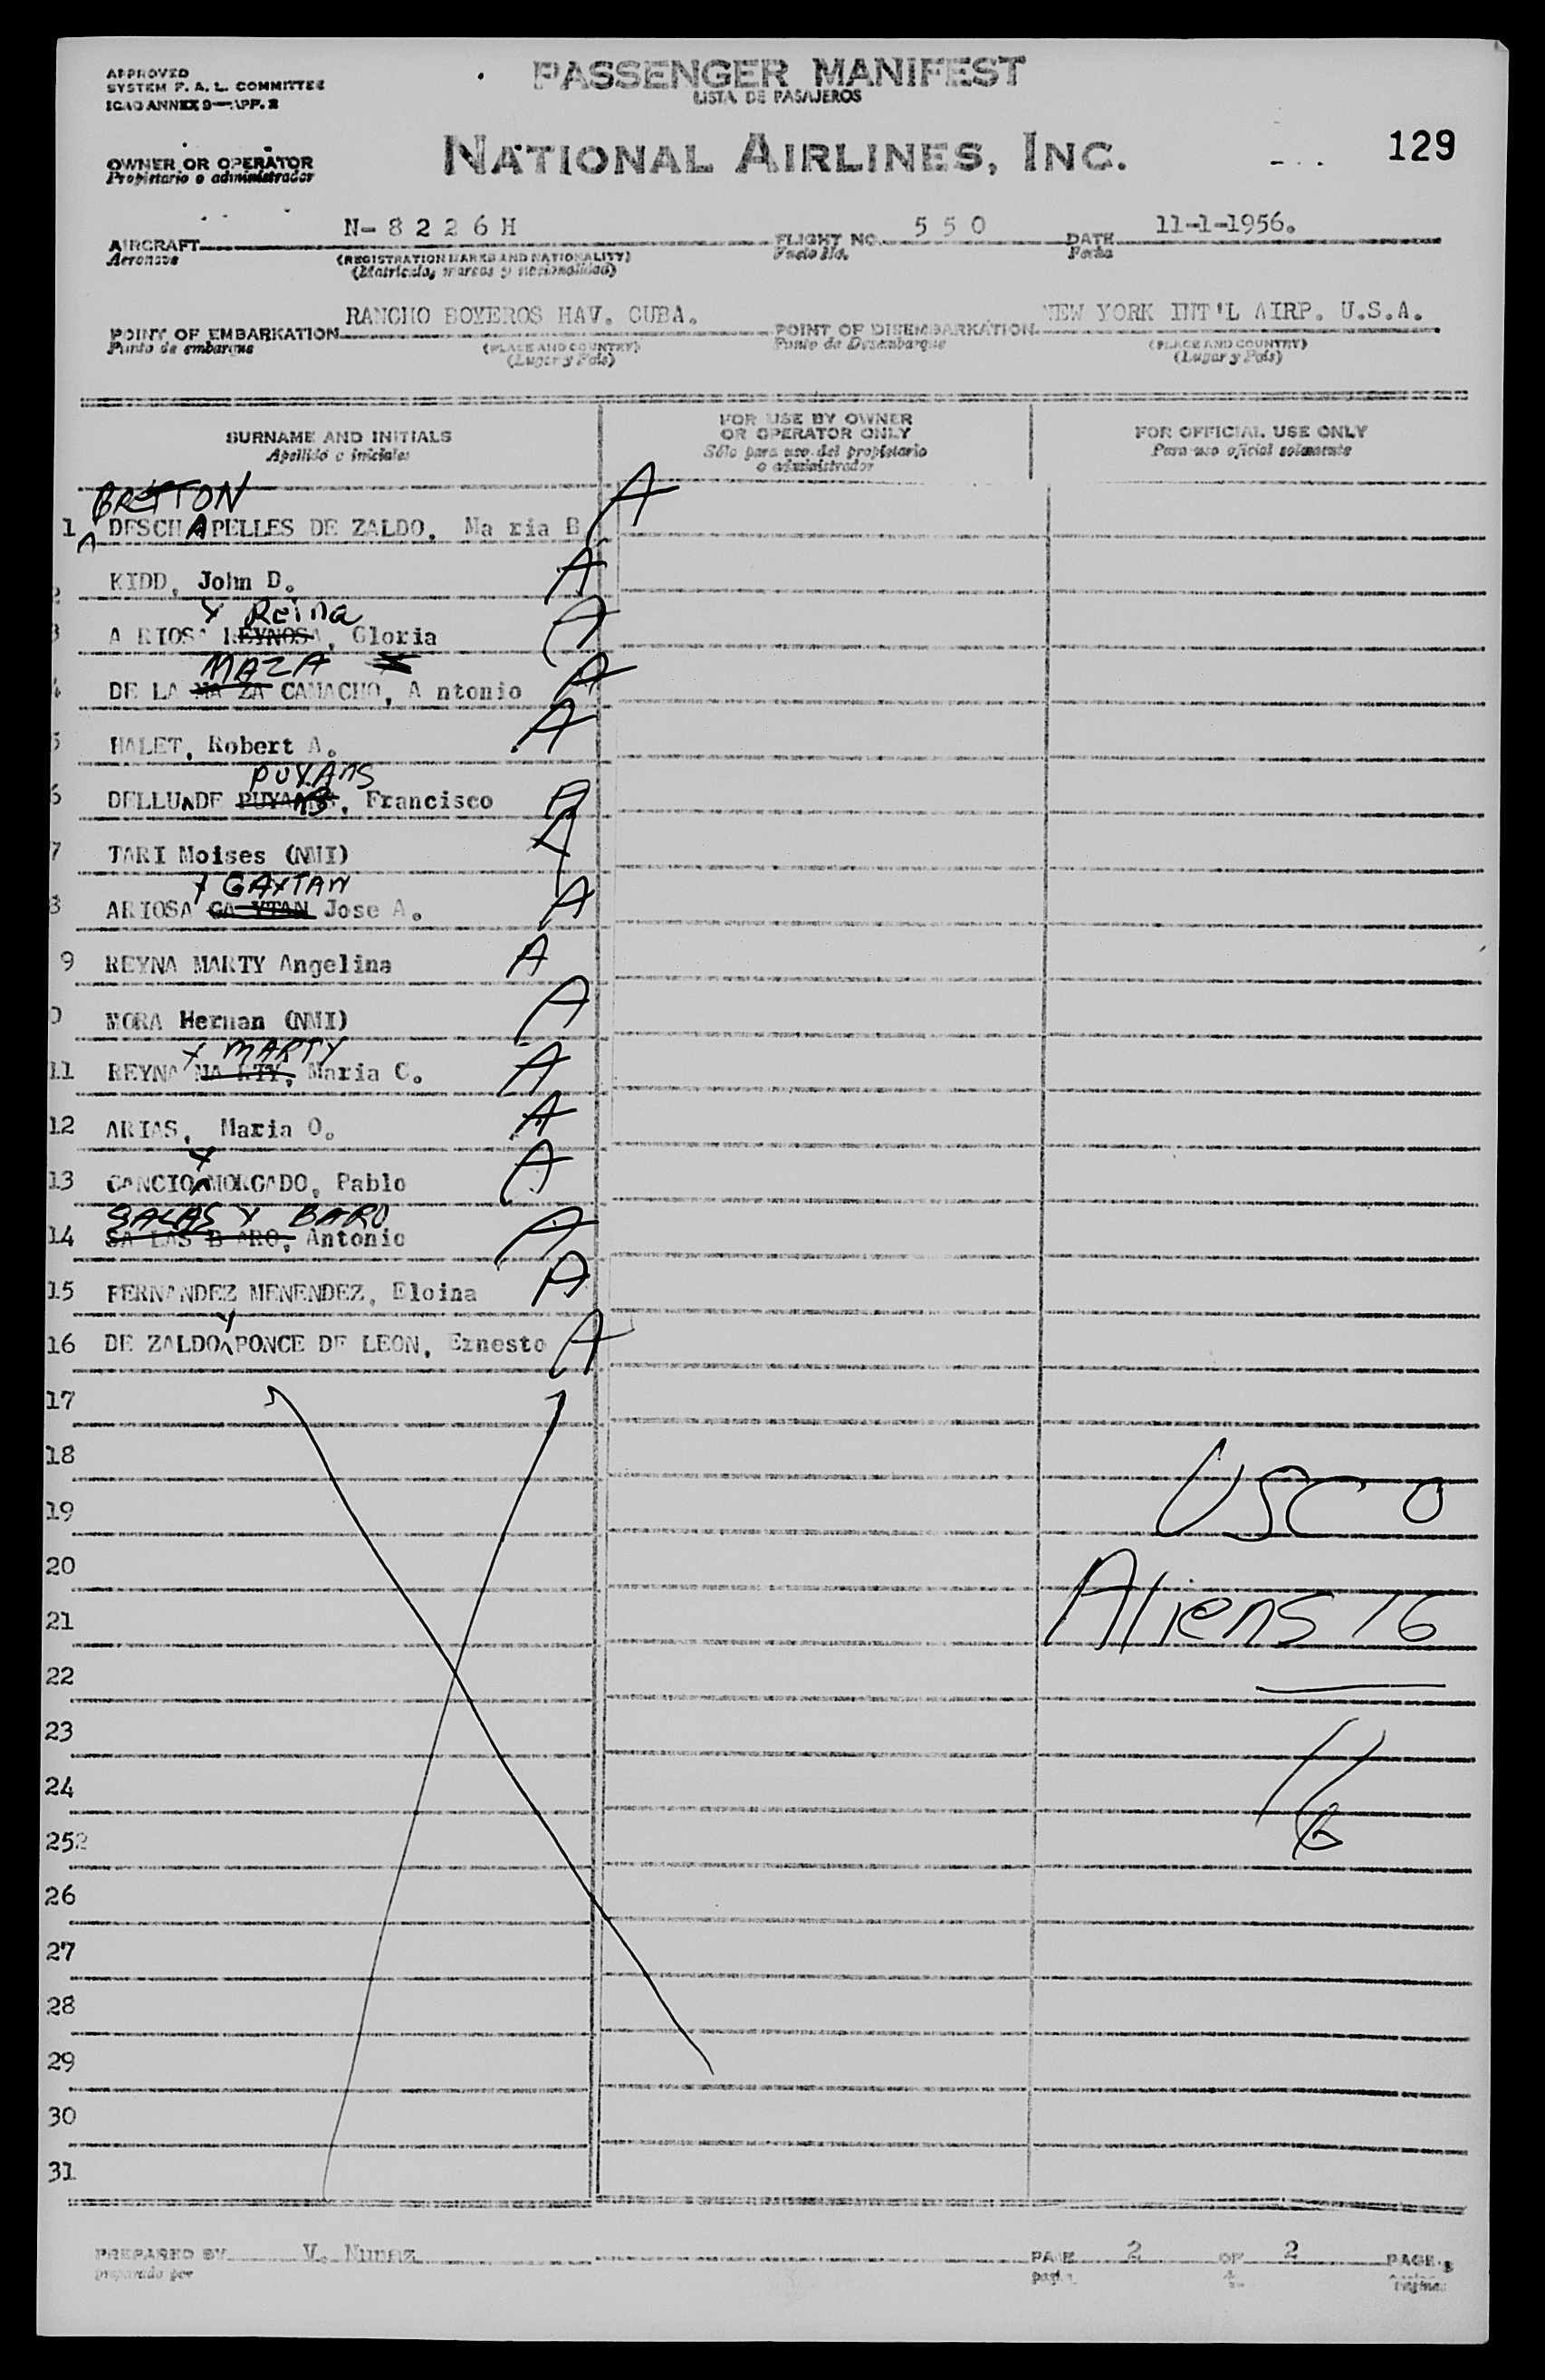 APPROVED
SYSTEM F. A. L. COMMITTEE
ICAO ANNEX 9—APP. 2
PASSENGER MANIFEST
LISTA DE PASAJEROS
OWNER OR OPERATOR
Propietario o administrador
NATIONAL AIRLINES, INC.
129
AIRCRAFT N- 8 2 2 6 H FLIGHT NO. 5 5 0 DATE 11-1-1956.
Aeronave (REGISTRATION MARKS AND NATIONALITY) Vuelo No. Fecha
(Matricula, marcas y nacionalidad)
POINT OF EMBARKATION RANCHO BOYEROS HAV. CUBA. POINT OF DISEMBARKATION NEW YORK INT'L AIRP. U.S.A.
Punto de embarque (PLACE AND COUNTRY) Punto de Desembarque (PLACE AND COUNTRY)
(Lugar y Pais) (Lugar y Pais)
SURNAME AND INITIALS
Apellido e iniciales
FOR USE BY OWNER
OR OPERATOR ONLY
Sólo para uso del propietario
o administrador
FOR OFFICIAL USE ONLY
Para uso oficial solamente
BRETTON
1 DESCHAPELLES DE ZALDO, Ma ria B A
2 KIDD, John D. A
y Reina
3 A RIOSA REYNOSA, Gloria A
MAZA
4 DE LA MA ZA CAMACHO, A ntonio A
5 HALET, Robert A. A
PUYANS
6 DELLUNDE PUYANS, Francisco A
7 TARI Moises (NMI) A
y GAYTAN
8 ARIOSA GA YTAN Jose A. A
9 REYNA MARTY Angelina A
0 MORA Hernan (NMI) A
y MARTY
11 REYNA MA RTY, Maria C. A
12 ARIAS, Maria O. A
y
13 CANCIO MORGADO, Pablo A
SALAS Y BARO
14 SA LAS B ARO, Antonio A
15 FERNANDEZ MENENDEZ, Eloina A
y
16 DE ZALDO PONCE DE LEON, Ernesto A
17
18
19
20
21
22
23
24
252
26
27
28
29
30
31
USC 0
Aliens 16
PREPARED BY V. Nunez PAGE 2 OF 2 PAGES
preparado por